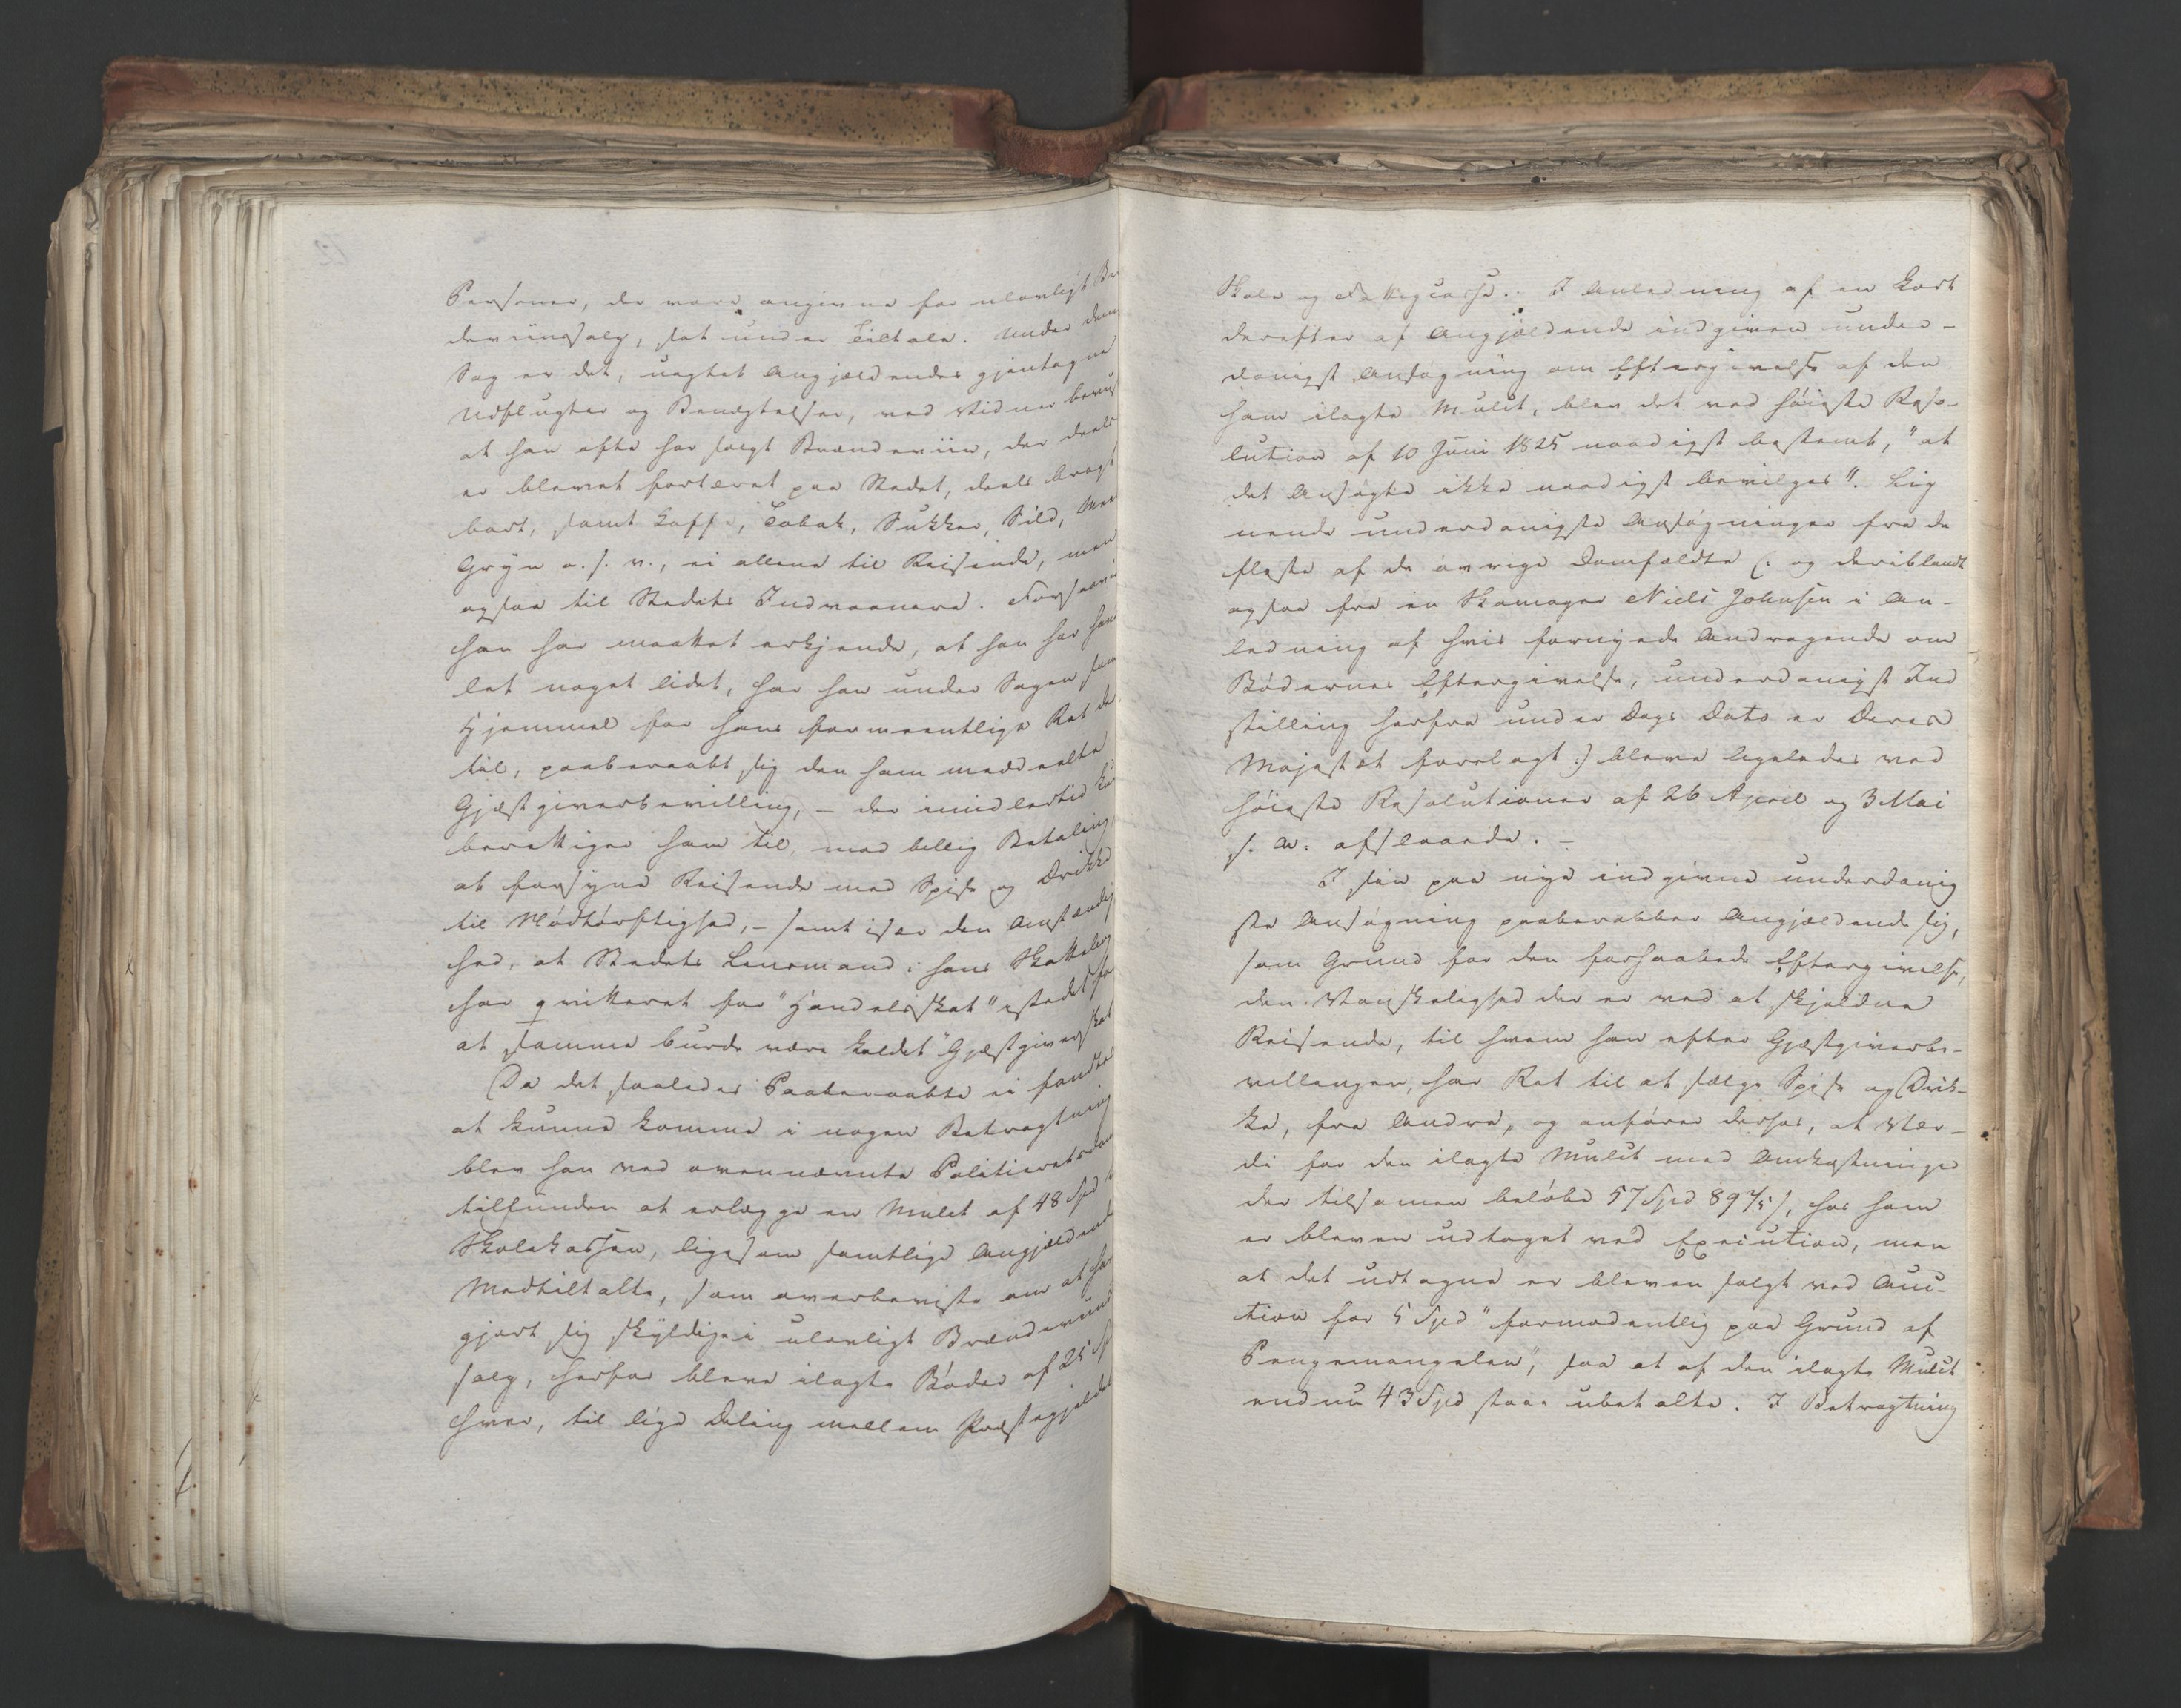 Personer, der vare angivne for ulovligt Bræn
deviinsalg, sat under Tiltale. Under denne
Sag er det, uagtet Angjældendes gjentagne
Udflugter og Benægtelser, ved Vidner beviist
at han ofte har solgt Brændeviin, der deels
er blevet fortæret paa Stedet, deels bragt
bort, samt Kaffe, Tobak, Sukker, Sild, Meel
Gryn o. s. v., ei allene til Reisende, men
ogsaa til Stedets Indvaanere. Forsaavidt
han har maattet erkjende, at han har hand
let noget lidet, har han under Sagen som
Hjemmel for hans formeentlige Ret der
til, paaberaabt sig den ham meddeelte
Gjæstgiverbevilling, – der imidlertid kun
berettiger ham til, mod billig Betaling
at forsyne Reisende med Spise og Drikke
til Nødtørftighed, – samt især den Omstændig
hed, at Stedets Lensmand i hans Skattebog
har qvitteret for "Handelsskat" istedetfor
at samme burde være kaldet "Gjæstgiverskat
Da det saaledes Paaberaabte ei fandtes
at kunne komme i nogen Betragtning
blev han ved ovennævnte Politieretsdom
tilfunden at erlægge en Mulct af 48 Spd til
Skolekassen, ligesom samtlige Angjældendes
Medtiltalte, som overbeviste om at have
gjort sig skyldige i ulovligt Brændeviins
salg, herfor bleve ilagte Bøder af 25 Spd
hver, til lige Deling mellem Præstegjeldets
Skole og Fattigcasse. I Anledning af en kort
derefter af Angjældende indgiven under-
danigst Ansøgning om Eftergivelse af den
ham ilagte Mulct, blev det ved høieste Reso-
lution af 10 Juni 1825 naadigst bestemt, "at
det Ansøgte ikke naadigst bevilges". Lig
nende underdanigste Ansøgninger fra de
fleste af de øvrige Domfældte (: og deriblandt
ogsaa fra en Skomager Niels Johnsen i An-
ledning af hvis fornyede Andragende om
Bødernes Eftergivelse, underdanigst Ind
stilling herfra under Dags Dato er Deres
Majestæt forelagt :) bleve ligeledes ved
høieste Resolutioner af 26 April og 3 Mai
s. A. afslaaede. –
I sin paa nye indgivne underdanig
ste Ansøgning paaberabber Angjældende sig,
som Grund for den forhaabede Eftergivelse,
den Vanskelighed der er ved at skjeldne
Reisende, til hvem han efter Gjæstgiverbe-
villingen, har Ret til at sælge Spise og Drik-
ke, fra Andre, og anfører derhos, at Vær-
di for den ilagte Mulct med Omkostninger
der tilsamen beløbe 57 Spd 89 4/5 s, hos ham
er bleven udtaget ved Execution, men
at det udtagne er bleven solgt ved Auc-
tion for 5 Spd "formodentlig paa Grund af
Pengemangelen", saa at af den ilagte Mulct
endnu 43 Spd staae ubetalte. I Betragtning